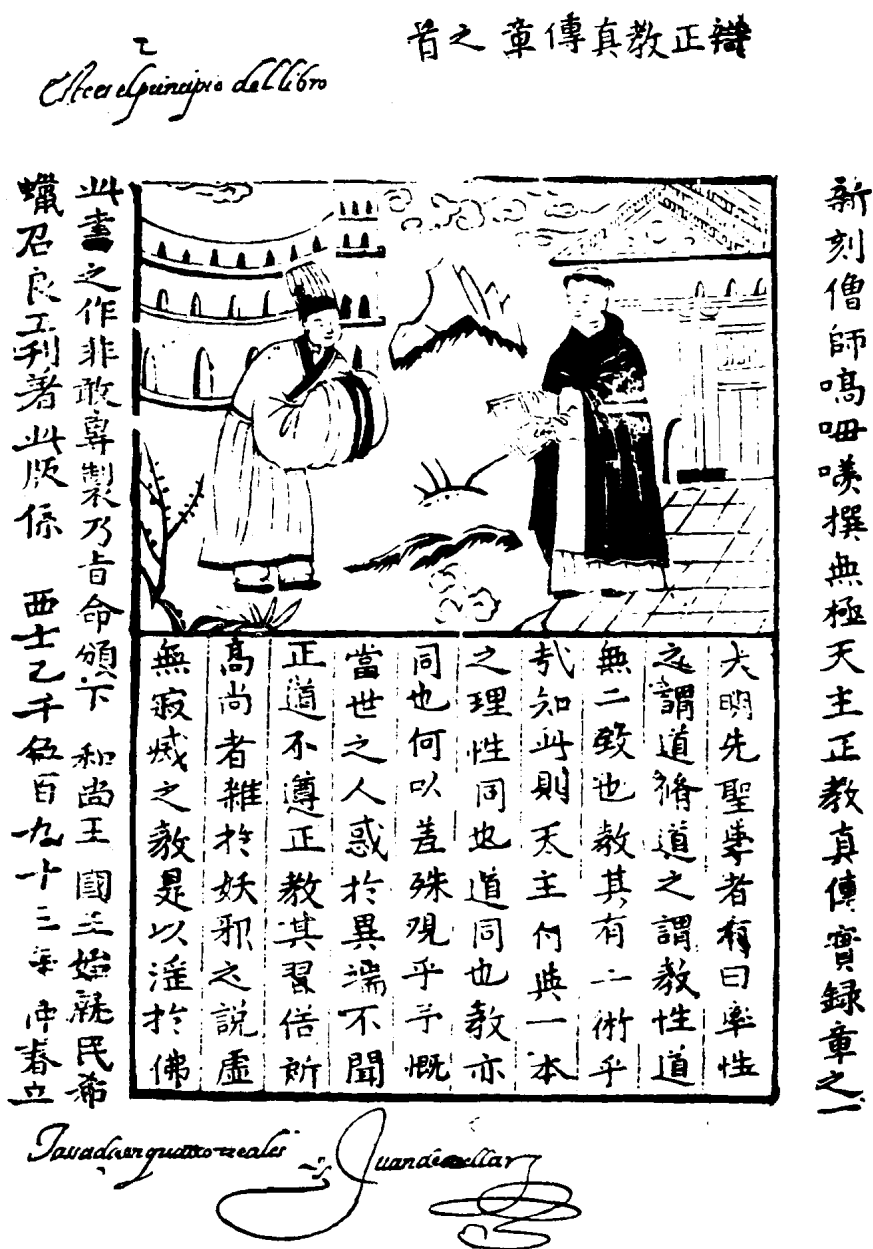 辯正教真傳章之首
Este es el principio del libro
新刻僧師嗃呣㗑撰無極天主正教真傳實錄章之一
大明先聖學者有曰率性
之謂道脩道之謂教性道
無二致也教其有二術乎
哉知此則天主付與一本
之理性同也道同也教亦
同也何以差殊觀乎予慨
當世之人惑於異端不聞
正道不遵正教其習俗斬
高尚者雜於妖邪之說虛
無寂滅之教是以淫於佛
此書之作非敢專製乃旨命頒下 和尚王 國王始就民希
蠟召良工刊著此版係 西士乙千伍百九十三年仲春立
Tassada en quatro reales
Juan de cuellar